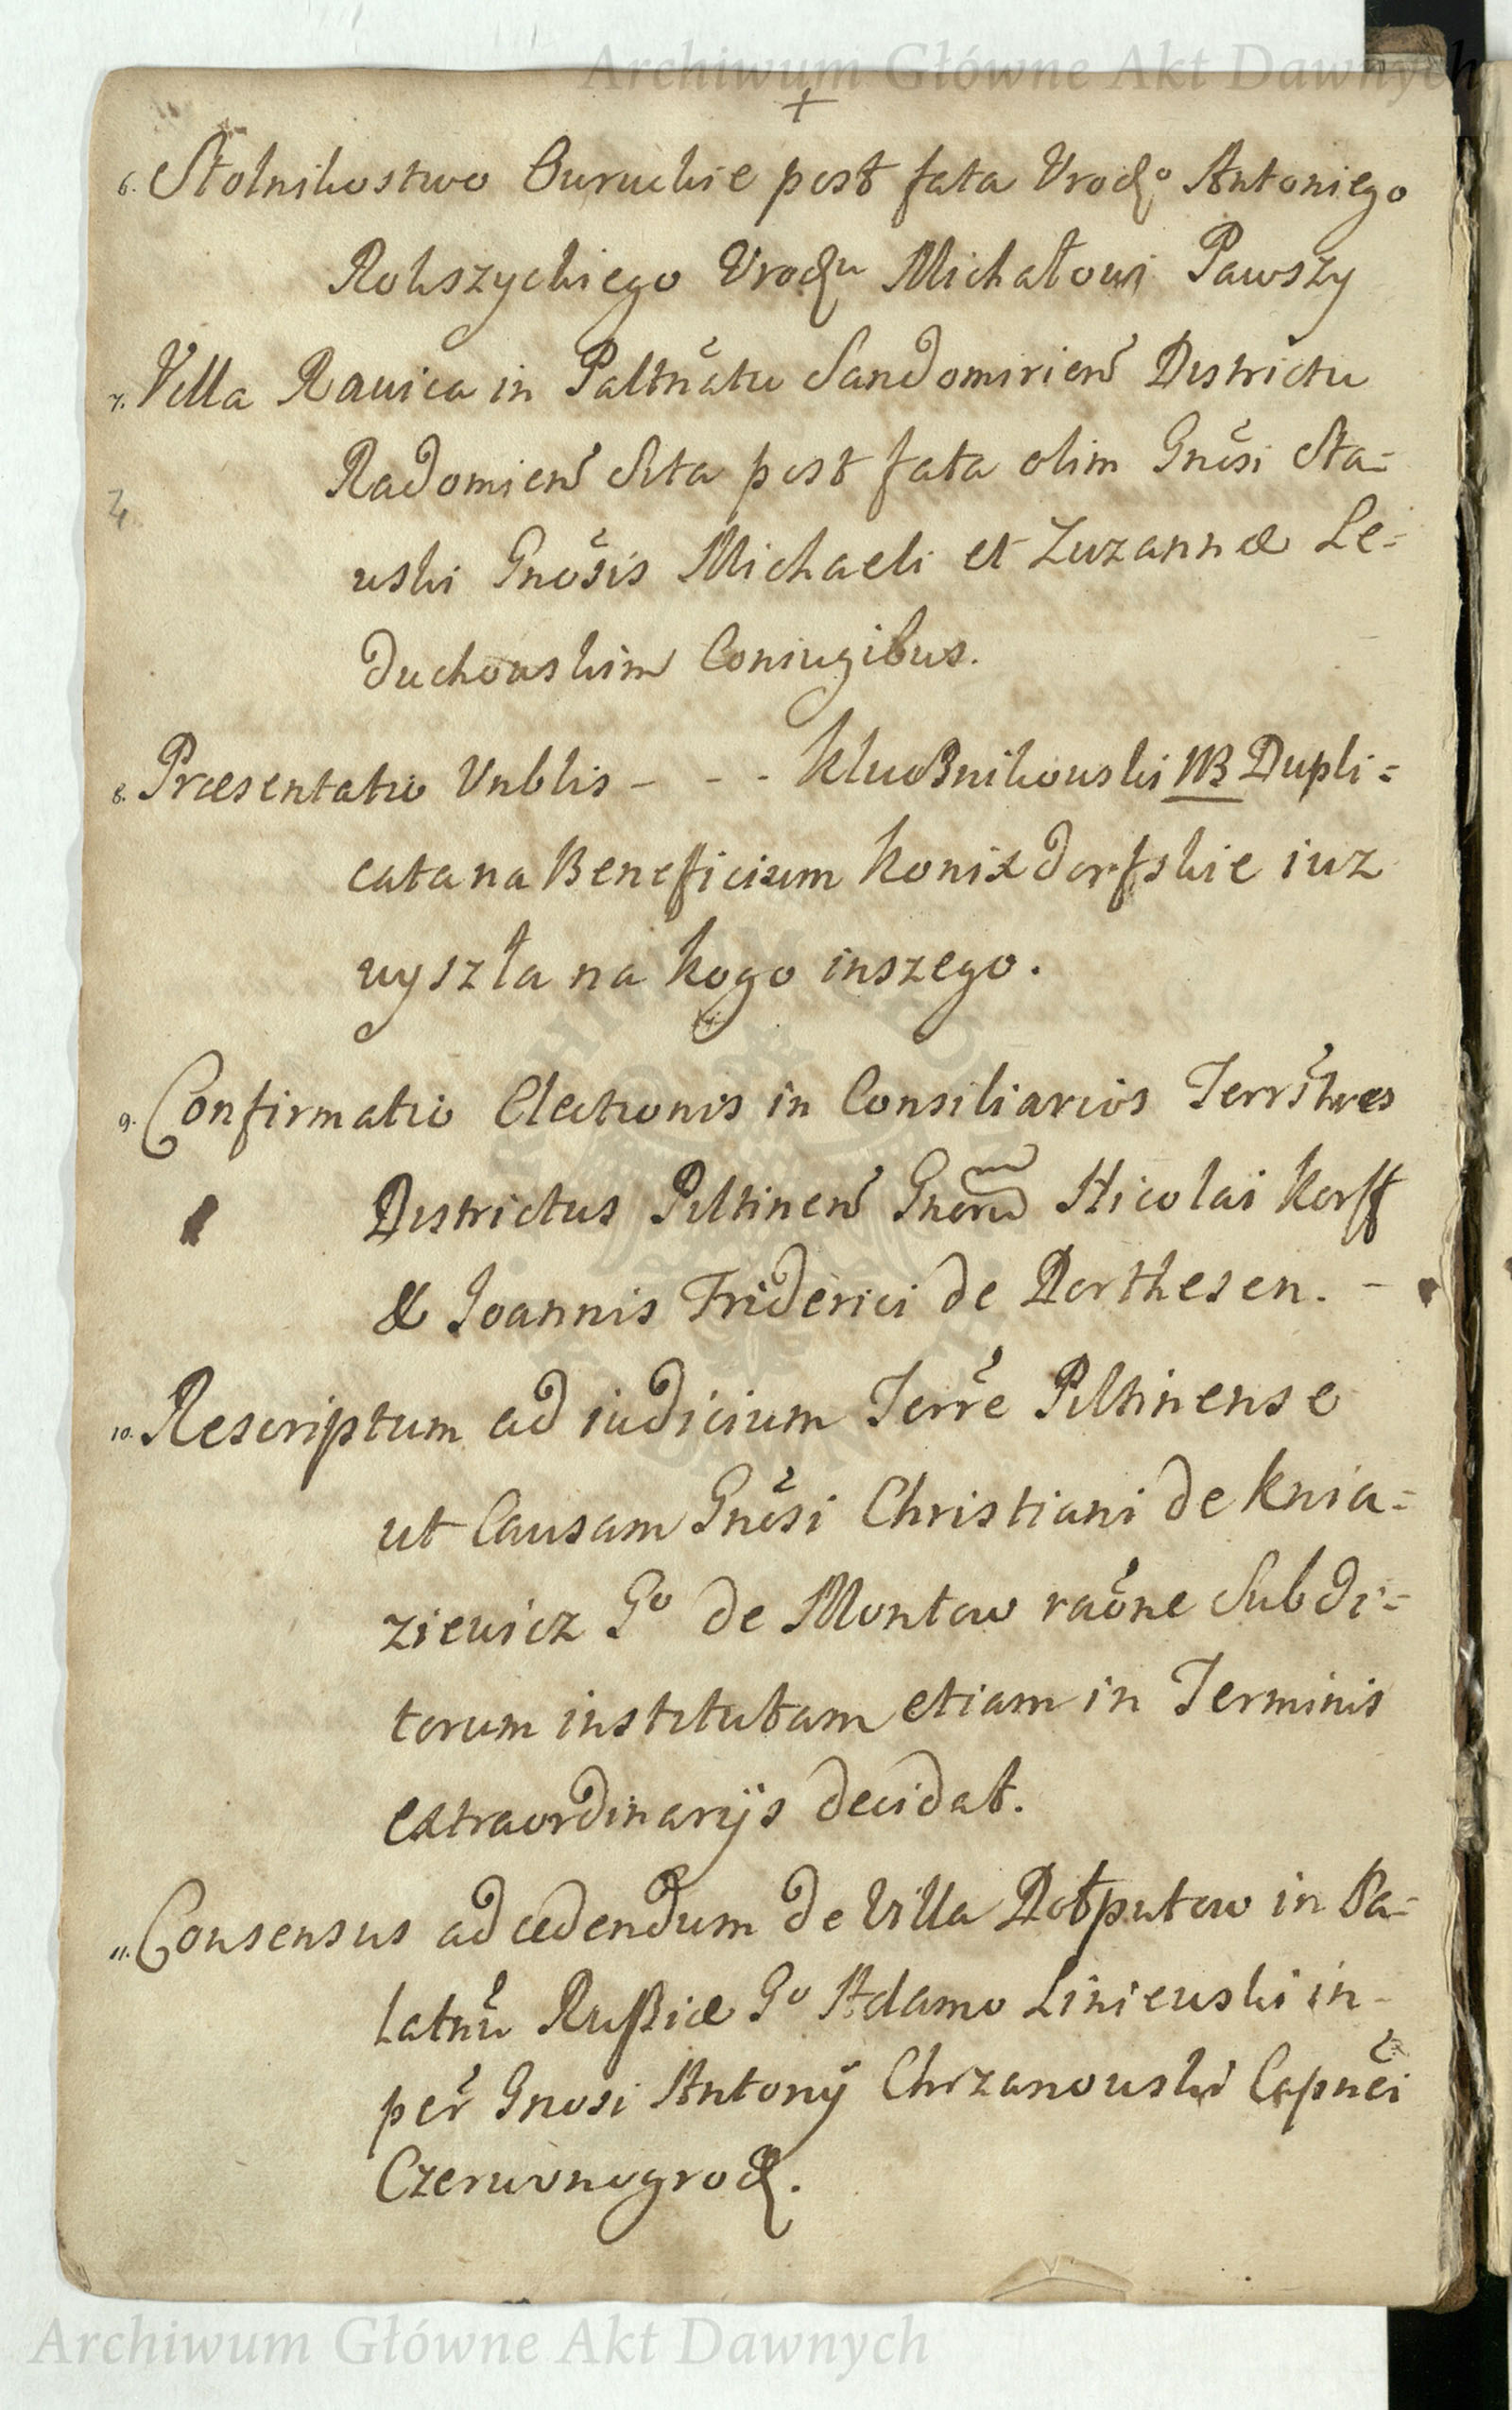 Archiwum Główne Akt Dawnych
+
6. Stolnikostwo Owruckie post fata Urodz° Antoniego
Rokszyckiego Urodzu Michałowi Pawszy
7. Villa Rawica in Paltnătu Sandomirien Districtu
Radomien Sita post fata olim Gnősi Sta=
uski Gnősis Michaeli et Zuzannæ Le=
duchowskim Coniugibus.
8. Præsentatio Vnblis - - - Kluoßnikowski NB Dupli=
cata na Beneficium Konixdorfskie iuz
wyszła na kogo inszego.
9. Confirmatio Electionis in Consiliarios Terrstres
Districtus Piltinen Gnoru Nicolai Korff
& Joannis Friderici de Dorthesen. -
10. Rescriptum ad iudicium Terrĕ Piltinense
ut Causam Gnősi Christiani de Knia=
ziewicz Go de Montow raőne Subdi=
torum institutam etiam in Terminis
extraordinarijs decidat.
11. Consensus ad cedendum de Villa Dołputow in Pa=
latnu Rußiæ Go Adamo Liniewski in-
per Gnosi Antonij Chrzanowski Capnei
Czerwonogrod.
Archiwum Główne Akt Dawnych